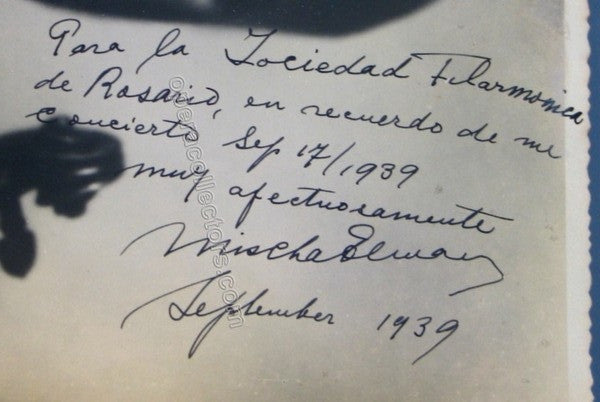 Para la Sociedad Filarmonica
de Rosario, en recuerdo de mi
concierto Sep 17/1939
muy afectuosamente
Mischa Elman
September 1939
operacollectors.com